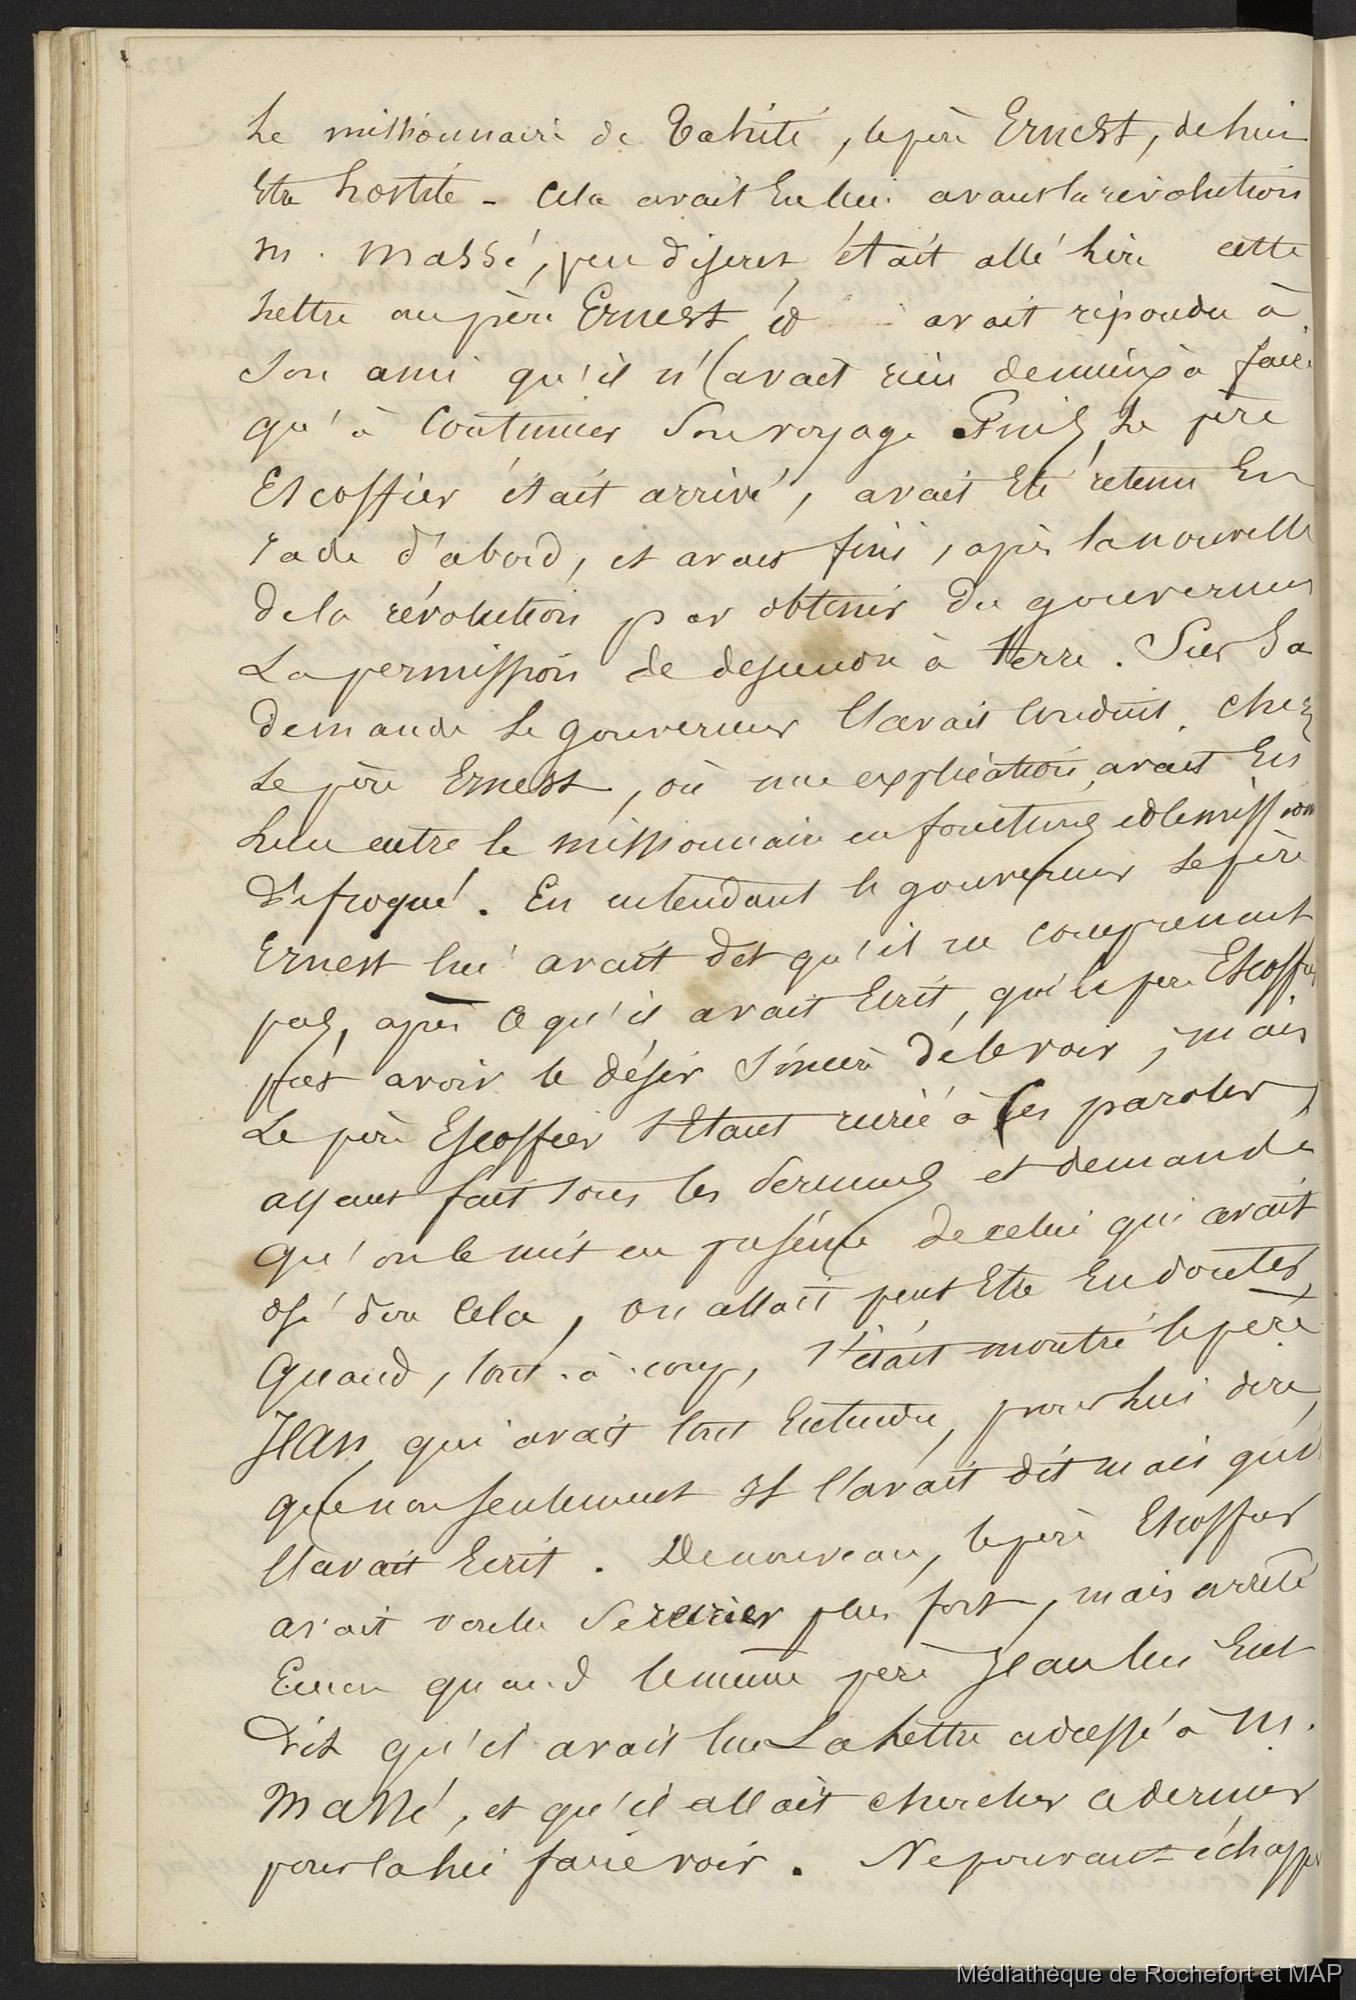 Le missionnaire de Tahiti, le père Ernest, de lui
être hostile - Cela avait eu lieu avant la révolution
M. Massé, peu discret, était allé lire cette
lettre au père Ernest et avait répondu à
son ami qu'il n'avait rien de mieux à faire
qu'à continuer son voyage. Puis, le père
Escoffier était arrivé, avait été retenu en
rade d'abord, et avait fini, après la nouvelle
de la révolution par obtenir du gouverneur
la permission de descendre à terre. Sur sa
demande le gouverneur l'avait conduit chez
le père Ernest, où une explication avait eu
lieu entre le missionnaire en fonctions et le mission
défroqué. En entendant le gouverneur le père
Ernest lui avait dit qu'il ne comprenait
pas, après ce qu'il avait écrit, que le père Escoffier
pût avoir le désir sincère de le voir ; mais
le père Escoffier s'étant récrié à ces paroles,
ayant fait tous les serments et demandé
qu'on le mît en présence de celui qui avait
osé dire cela, on allait peut être en douter,
quand, tout-à-coup, s'était montré le père
Jean, qui avait tout entendu, pour lui dire,
que non seulement il l'avait dit mais qu'il
l'avait écrit. De nouveau, le père Escoffier
avait voulu se récrier plus fort, mais arrêté
quand le même père Jean lui eut
dit qu'il avait lu la lettre adressé à M.
Massé, et qu'il allait chercher ce dernier
pour la lui faire voir. Ne pouvant échapper
Médiathèque de Rochefort et MAP